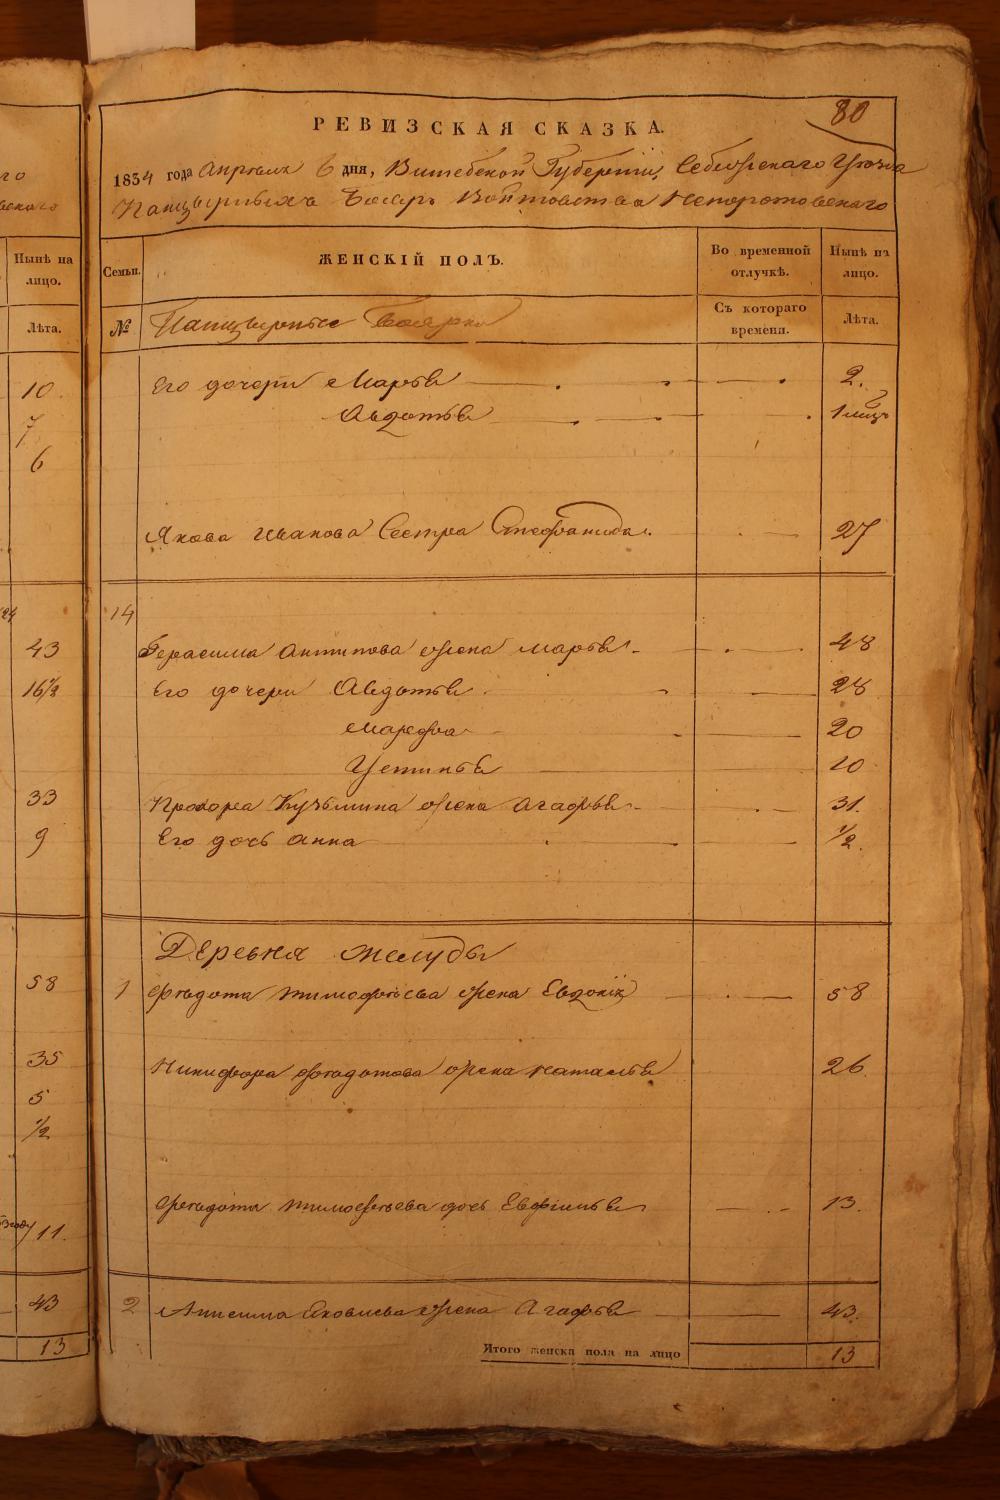 80
РЕВИЗСКАЯ СКАЗКА.
1834 года Апреля 6 дня, Витебской Губернии, Себежскаго Уезда
Панцырныхъ Бояръ Войтовства Непоротовскаго
Нынѣ на лицо.
Лѣта.
Семьи.
ЖЕНСКІЙ ПОЛЪ.
Во временной отлучкѣ.
Нынѣ на лицо.
№
Панцырные Боярки
Съ котораго времени.
Лѣта.
10
Его дочери Марья 2.
7
Авдотья 1
6
Якова Иванова Сестра Стефанида 27
14
43
Герасима Антипова жена Марья 48
16 1/2
Его дочери Авдотья 28
Марфа 20
Устинья 10
33
Прохора Кузьмина жена Агафья 31.
9
Его дочь Анна 1/2.
Деревня Желуды
58
1 Федота Тимофеева жена Евдокія 58
35
Никифора Федотова жена Наталья 26
5
1/2
Федота Тимофеева дочь Евфимья 13.
11.
43
2 Анисима Яковлева жена Агафья 43.
13
Итого женска пола на лицо 13